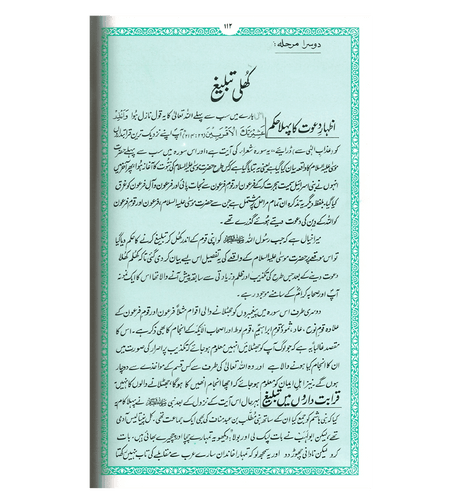 ۱۱۳
دوسرا مرحلہ:
کھلی تبلیغ
اظہارِ دعوت کا پہلا حکم اس بارے میں سب سے پہلے اللہ تعالیٰ کا یہ قول نازل ہوا وَأَنْذِرْ
عَشِيْرَتَكَ الْأَقْرَبِيْنَ (۲۱۴:۲۶) آپ اپنے نزدیک ترین قرابتداروں
کو عذابِ الٰہی سے ڈرائیے۔ یہ سورۂ شعراء کی آیت ہے اور اس سورہ میں سب سے پہلے حضرت
موسیٰ علیہ السلام کا واقعہ بیان کیا گیا ہے یعنی یہ بتایا گیا ہے کہ کس طرح حضرت موسیٰ علیہ السلام کی نبوت کا آغاز ہوا پھر آخر میں
انہوں نے بنی اسرائیل سمیت ہجرت کر کے فرعون اور قوم فرعون سے نجات پائی اور فرعون و آل فرعون کو غرق
کیا گیا۔ بلفظ دیگر یہ تذکرہ ان تمام مراحل پر مشتمل ہے جن سے حضرت موسیٰ علیہ السلام، فرعون اور قوم فرعون
کو اللہ کے دین کی دعوت دیتے ہوئے گذرے تھے۔
میرا خیال ہے کہ جب رسول اللہ ﷺ کو اپنی قوم کے اندر کھل کر تبلیغ کرنے کا حکم دیا گیا
تو اس موقعے پر حضرت موسیٰ علیہ السلام کے واقعے کی یہ تفصیل اس لیے بیان کر دی گئی تاکہ کھلم کھلا
دعوت دینے کے بعد جس طرح کی تکذیب اور ظلم و زیادتی سے سابقہ پیش آنے والا تھا اس کا ایک نمونہ
آپ اور صحابہ کرامؓ کے سامنے موجود رہے۔
دوسری طرف اس سورہ میں پیغمبروں کو جھٹلانے والی اقوام مثلاً فرعون اور قوم فرعون کے
علاوہ قوم نوح، عاد، ثمود، قوم ابراہیم، قوم لوط اور اصحاب الایکہ کے انجام کا بھی ذکر ہے۔ اس کا
مقصد غالباً یہ ہے کہ جو لوگ آپ کو جھٹلائیں انہیں معلوم ہو جائے کہ تکذیب پر اصرار کی صورت میں
ان کا انجام کیا ہونے والا ہے اور وہ اللہ تعالیٰ کی طرف سے کس قسم کے مواخذے سے دوچار
ہوں گے۔ نیز اہل ایمان کو معلوم ہو جائے کہ اچھا انجام انہیں کا ہوگا جھٹلانے والوں کا نہیں
قرابت داروں میں تبلیغ بہر حال اس آیت کے نزول کے بعد نبی ﷺ نے پہلا کام یہ
کیا کہ بنی ہاشم کو جمع کیا ان کے ساتھ بنی مطلب بن عبد مناف کی بھی ایک جماعت تھی، کل پینتالیس آدمی
تھے لیکن ابولہب نے بات لپک لی اور بولا: دیکھو یہ تمہارے چچا اور چچیرے بھائی ہیں۔ بات
کرو لیکن نادانی چھوڑ دو اور یہ سمجھ لو کہ تمہارا خاندان سارے عرب سے مقابلے کی تاب نہیں رکھتا